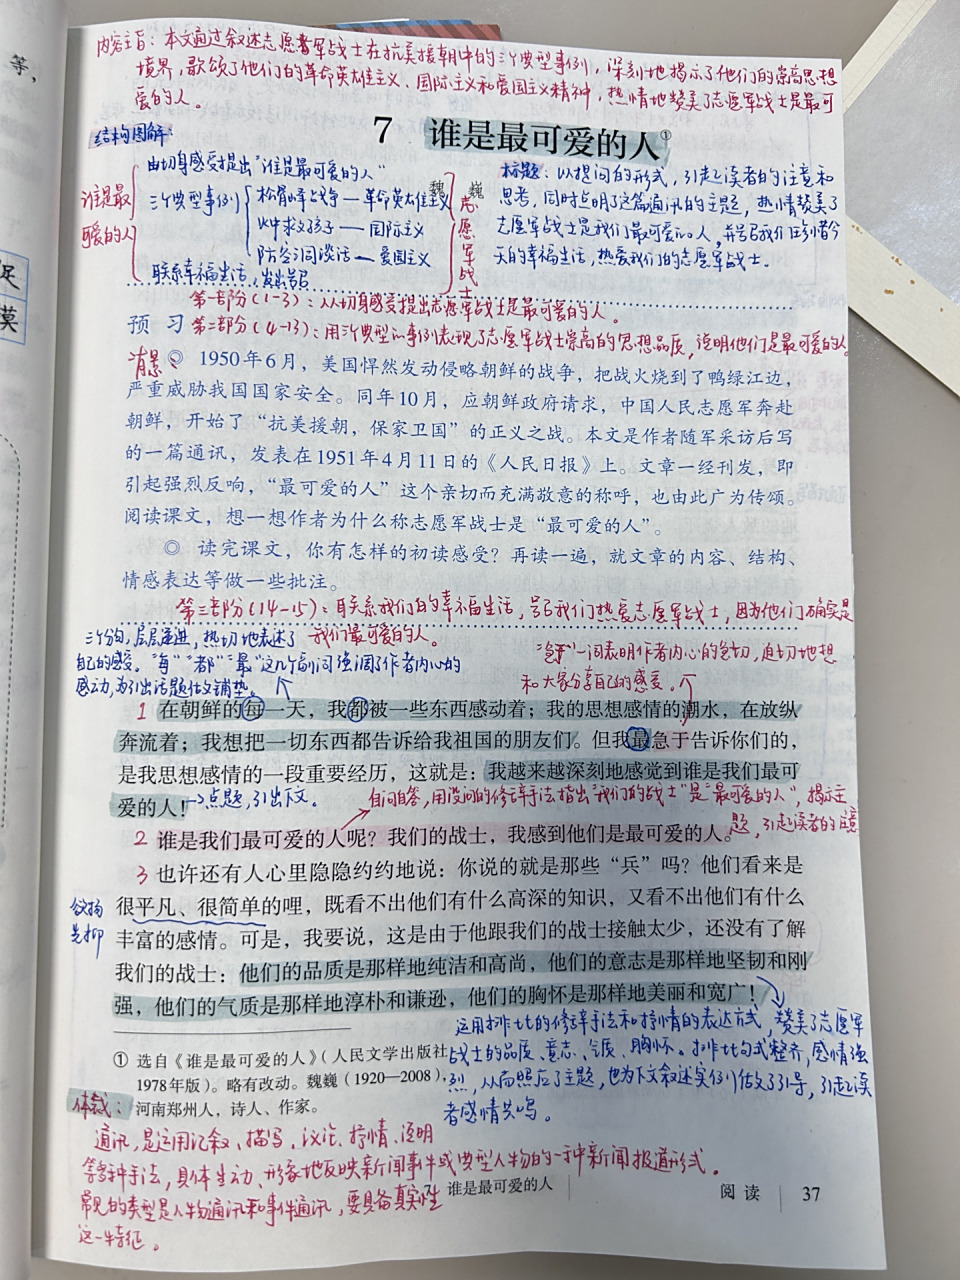 内容主旨：本文通过叙述志愿者军战士在抗美援朝中的三个典型事例，深刻地揭示了他们的崇高思想
境界，歌颂了他们的革命英雄主义、国际主义和爱国主义精神，热情地赞美了志愿军战士是最可
爱的人。
7 谁是最可爱的人①
魏 巍
结构图解：
谁是最
可爱的人
由切身感受提出“谁是最可爱的人”
三个典型事例
松骨峰战争—革命英雄主义
火中救孩子—国际主义
防空洞谈话—爱国主义
联系幸福生活，发出号召
志愿军战士
标题：以提问的形式，引起读者的注意和
思考，同时点明了这篇通讯的主题，热情赞美了
志愿军战士是我们最可爱的人，并号召我们珍惜今
天的幸福生活，热爱我们的志愿军战士。
第一部分（1-3）：从切身感受提出志愿军战士是最可爱的人。
预 习
第二部分（4-13）：用三个典型的事例表现了志愿军战士崇高的思想品质，说明他们是最可爱的人。
背景
◎ 1950年6月，美国悍然发动侵略朝鲜的战争，把战火烧到了鸭绿江边，
严重威胁我国国家安全。同年10月，应朝鲜政府请求，中国人民志愿军奔赴
朝鲜，开始了“抗美援朝，保家卫国”的正义之战。本文是作者随军采访后写
的一篇通讯，发表在1951年4月11日的《人民日报》上。文章一经刊发，即
引起强烈反响，“最可爱的人”这个亲切而充满敬意的称呼，也由此广为传颂。
阅读课文，想一想作者为什么称志愿军战士是“最可爱的人”。
◎ 读完课文，你有怎样的初读感受？再读一遍，就文章的内容、结构、
情感表达等做一些批注。
第三部分（14-15）：联系我们的幸福生活，号召我们热爱志愿军战士，因为他们确实是
我们最可爱的人。
三个分句，层层递进，热切地表述了
自己的感受。“每”“都”“最”这几个副词强调了作者内心的
感动，为引出话题作文铺垫。
“急于”一词表明作者内心的急切，迫切地想
和大家分享自己的感受。
1 在朝鲜的每一天，我都被一些东西感动着；我的思想感情的潮水，在放纵
奔流着；我想把一切东西都告诉给我祖国的朋友们。但我最急于告诉你们的，
是我思想感情的一段重要经历，这就是：我越来越深刻地感觉到谁是我们最可
爱的人！
→点题，引出下文。
自问自答，用设问的修辞手法指出“我们的战士”是“最可爱的人”，揭示主
题，引起读者的注意
2 谁是我们最可爱的人呢？我们的战士，我感到他们是最可爱的人。
3 也许还有人心里隐隐约约地说：你说的就是那些“兵”吗？他们看来是
很平凡、很简单的哩，既看不出他们有什么高深的知识，又看不出他们有什么
丰富的感情。可是，我要说，这是由于他跟我们的战士接触太少，还没有了解
我们的战士：他们的品质是那样地纯洁和高尚，他们的意志是那样地坚韧和刚
强，他们的气质是那样地淳朴和谦逊，他们的胸怀是那样地美丽和宽广！
欲扬
先抑
运用排比的修辞手法和抒情的表达方式，赞美了志愿军
战士的品质、意志、气质、胸怀。排比句式整齐，感情强
烈，从而照应了主题，也为下文叙述实例做了引导，引起读
者感情共鸣。
① 选自《谁是最可爱的人》（人民文学出版社
1978年版）。略有改动。魏巍（1920—2008），
河南郑州人，诗人、作家。
体裁：
通讯，是运用记叙、描写、议论、抒情、说明
等多种手法，具体生动、形象地反映新闻事件或典型人物的一种新闻报道形式。
常见的类型是人物通讯和事件通讯，要具备真实性
这一特征。
7 谁是最可爱的人
阅读 37
等，
足
漠